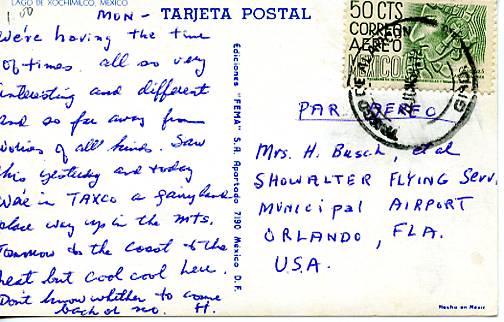 LAGO DE XOCHIMILCO, MEXICO
1.00
MON - TARJETA POSTAL
We're having the time
of times. all so very
interesting and different
and so far away from
worries of all kinds. Saw
this yesterday and today
We're in TAXCO a fairyland
place way up in the mts.
Tomorrow to the Coast & the
heat but cool cool here.
Don't know whether to come
back or no. H.
Ediciones "FEMA" S.A. Apartado 7190 Mexico D.F.
50 CTS
CORREO
AEREO
MEXICO
PAR AEREO
Mrs. H. Busch, et al
SHOWALTER FLYING Serv.
MUNICIPAL AIRPORT
ORLANDO, FLA.
U.S.A.
Hecho en Mexico